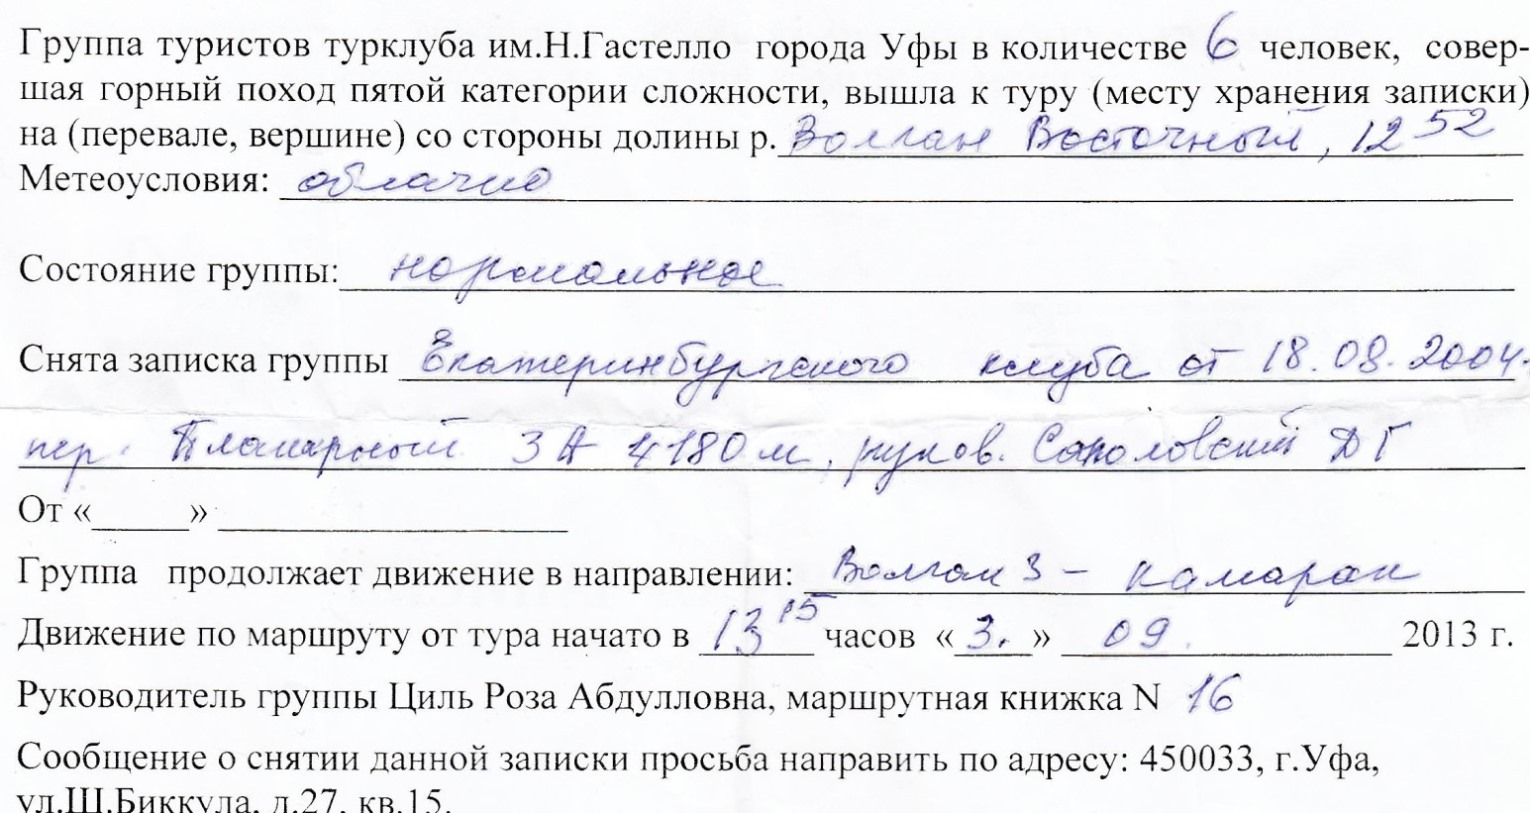 Группа туристов турклуба им.Н.Гастелло города Уфы в количестве 6 человек, совер-
шая горный поход пятой категории сложности, вышла к туру (месту хранения записки)
на (перевале, вершине) со стороны долины р. Волган Восточный, 12 52
Метеоусловия: облачно
Состояние группы: нормальное
Снята записка группы Екатеринбургского клуба от 18.08.2004.
пер. Планарный 3А 4180 м, руков. Соколовский ДГ
От «_____» __________________
Группа продолжает движение в направлении: Волган 3 – Камаран
Движение по маршруту от тура начато в 13 15 часов «3.» 09. 2013 г.
Руководитель группы Циль Роза Абдулловна, маршрутная книжка N 16
Сообщение о снятии данной записки просьба направить по адресу: 450033, г.Уфа,
ул.Ш.Биккула, д.27, кв.15.